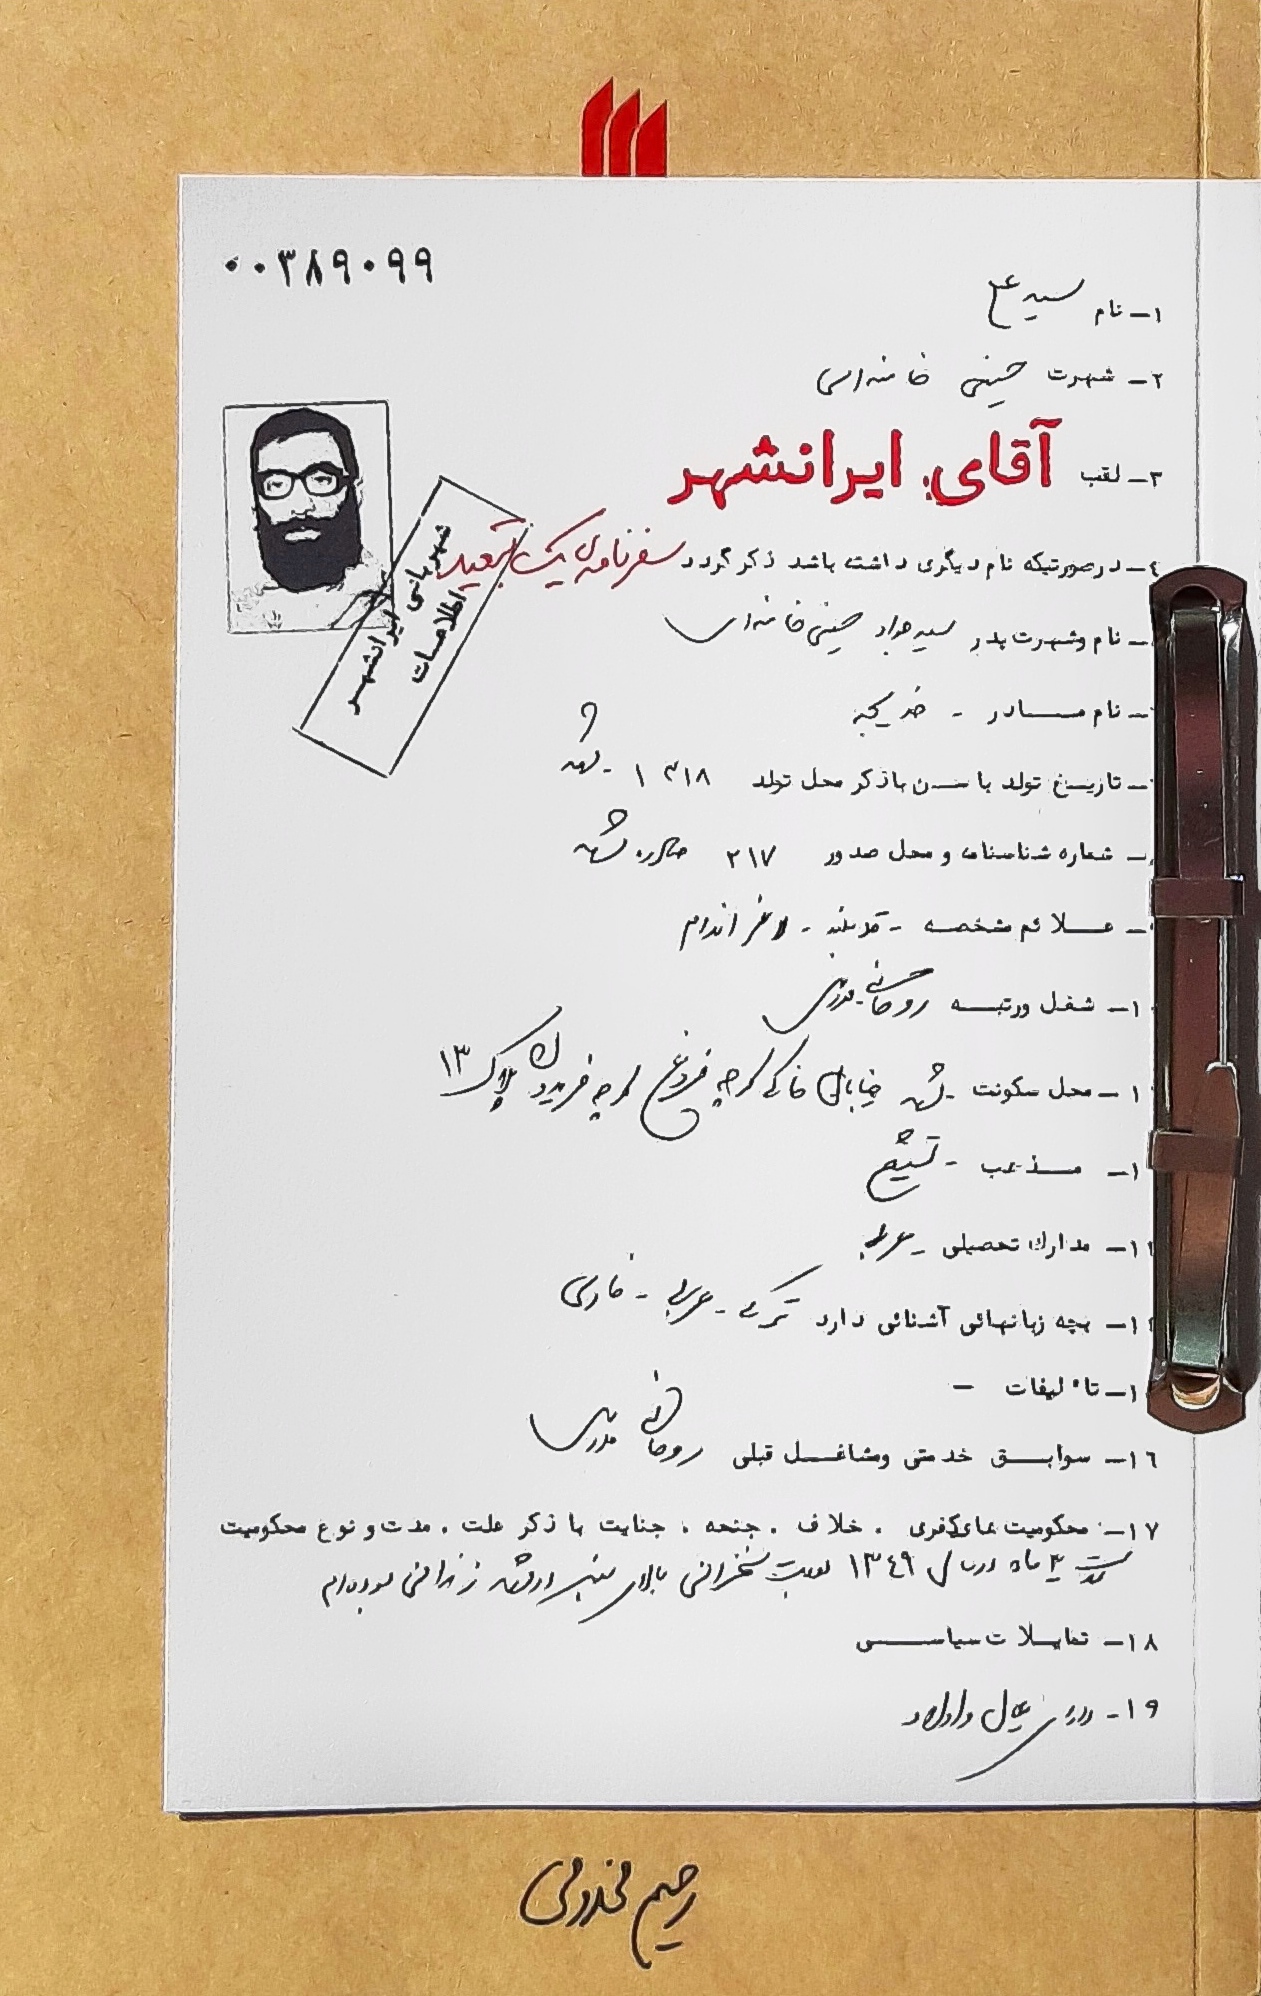 ۰۰۳۸۹۰۹۹
۱ـ نام سید علی
۲ـ شهرت حسینی خامنه‌ای
۳ـ لقب آقای ایرانشهر
٤ـ درصورتیکه نام دیگری داشته باشد ذکر گردد سفرنامه‌ی یک تبعید
شهربانی ایرانشهر
اطلاعات
ـ نام وشهرت پدر سید جواد حسینی خامنه‌ای
ـ نام مادر - خدیجه
ـ تاریخ تولد با سن باذکر محل تولد ۱۳۱۸ - مشهد
ـ شماره شناسنامه و محل صدور ۲۱۷ صادره مشهد
ـ علائم مشخصه - قد بلند - لاغر اندام
۱ـ شغل ورتبه روحانی - مدرس
۱ـ محل سکونت - مشهد خیابان خاکی کوچه فروغ کوچه فریدون پلاک ۱۳
۱ـ مذهب - تشیع
۱ـ مدارك تحصیلی - عربی
۱ـ بچه زبانهائی آشنائی دارد ترکی - عربی - فارسی
۱ـ تاٴ لیفات -
۱٦ـ سوابق خدمتی ومشاغل قبلی روحانی مدرس
۱۷ـ محکومیت های کیفری ، خلاف ، جنحه ، جنایت با ذکر علت ، مدت و نوع محکومیت
مدت ۳ ماه در سال ۱۳٤۹ بعلت سخنرانی بالای منبر در مشهد زندانی بوده‌ام
۱۸ـ تمایلات سیاسی
۱۹ـ دارای عیال و اولاد
رحیم مخدومی